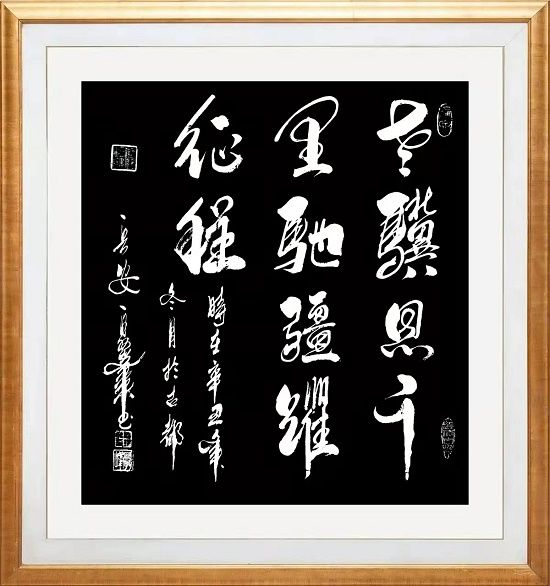 老驥思千
里馳疆躍
征程
時在辛丑年
冬月於古都
長安